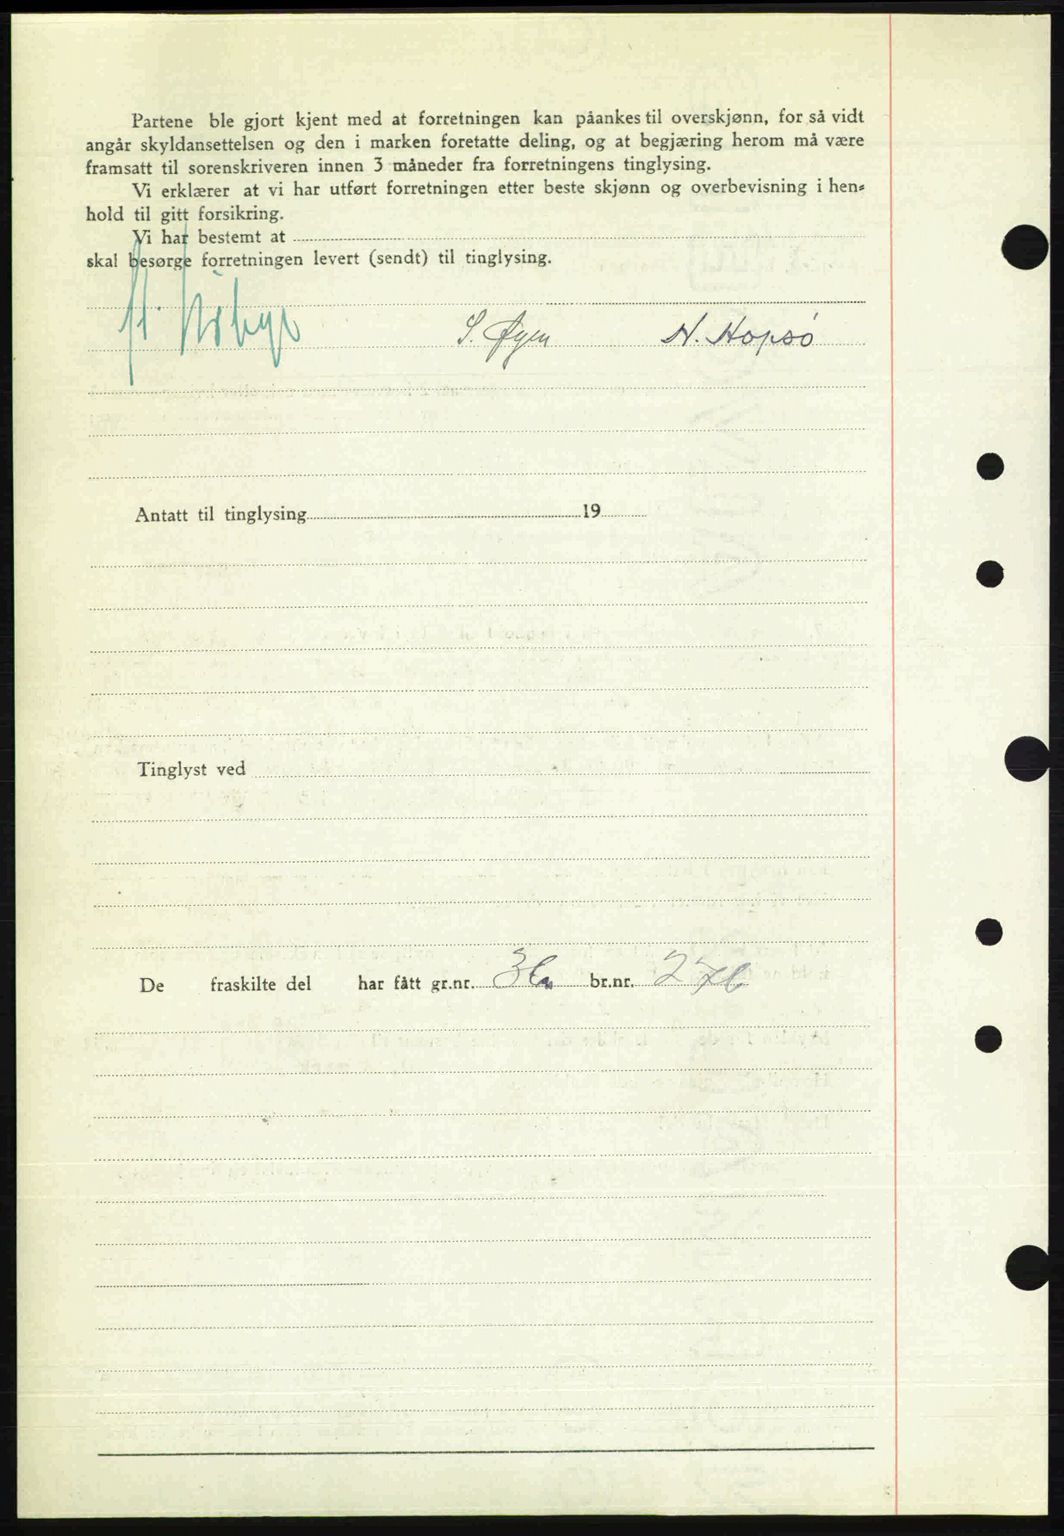 Partene ble gjort kjent med at forretningen kan påankes til overskjønn, for så vidt
angår skyldansettelsen og den i marken foretatte deling, og at begjæring herom må være
framsatt til sorenskriveren innen 3 måneder fra forretningens tinglysing.
Vi erklærer at vi har utført forretningen etter beste skjønn og overbevisning i hen-
hold til gitt forsikring.
Vi har bestemt at
skal besørge forretningen levert (sendt) til tinglysing.
S. Øyen N. Hopsø
Antatt til tinglysing 19
Tinglyst ved
De fraskilte del har fått gr.nr. br.nr.